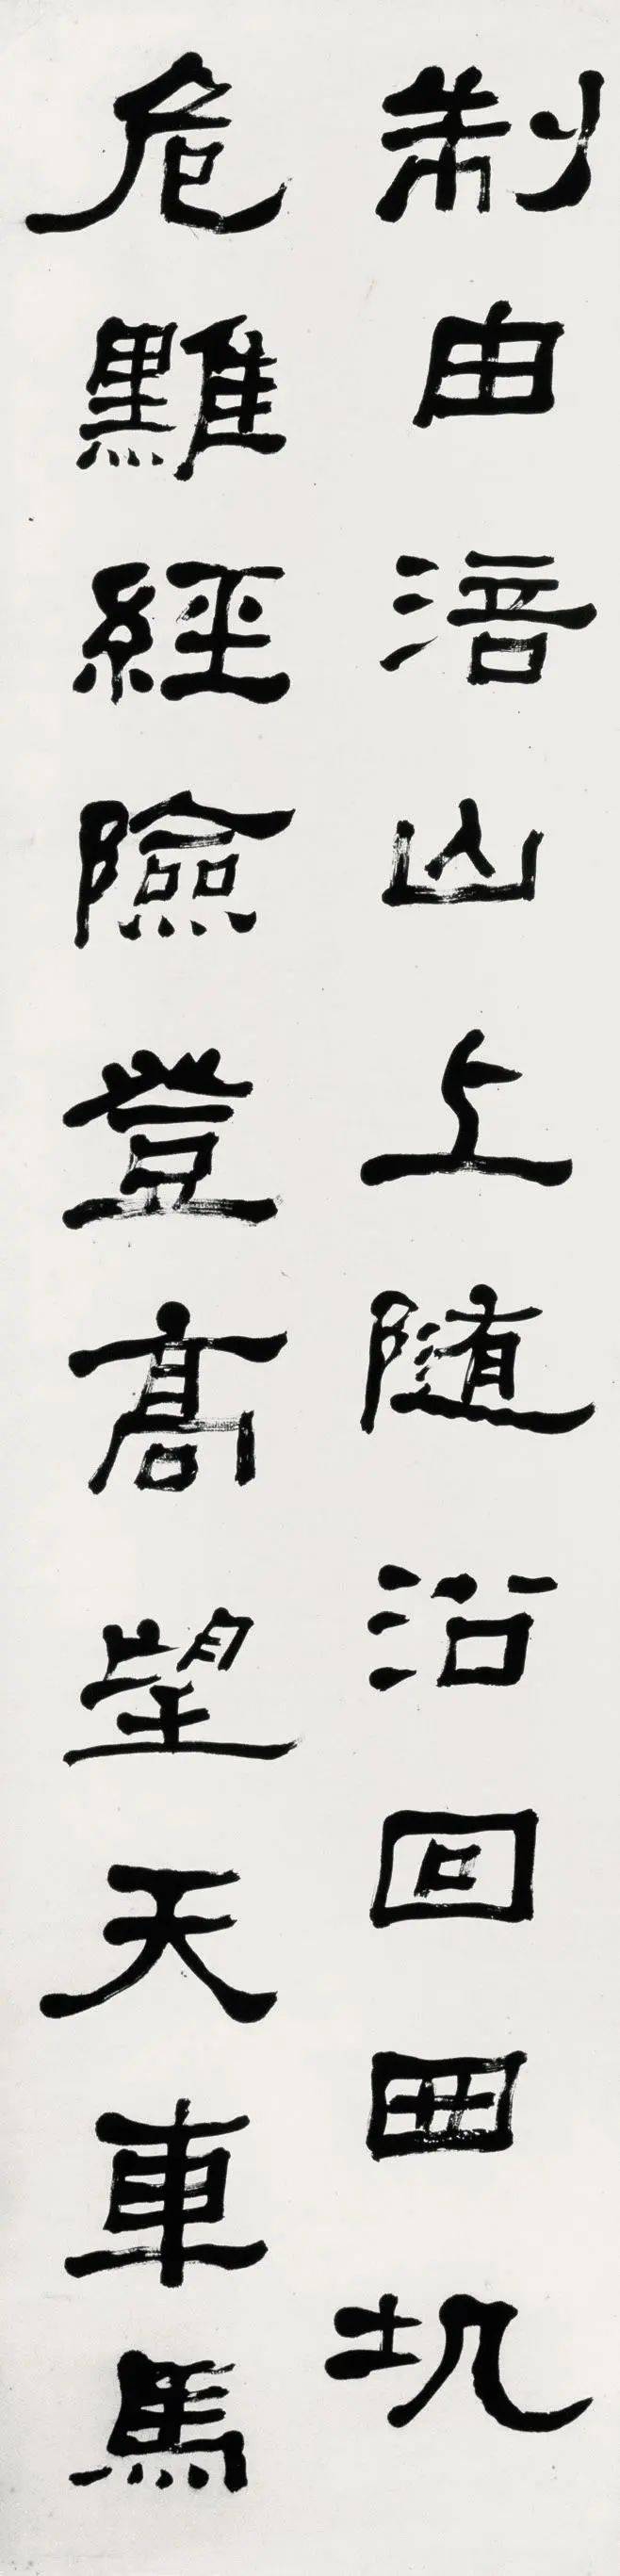 制由涪山上随沿回曲
危難經險登高望天車馬